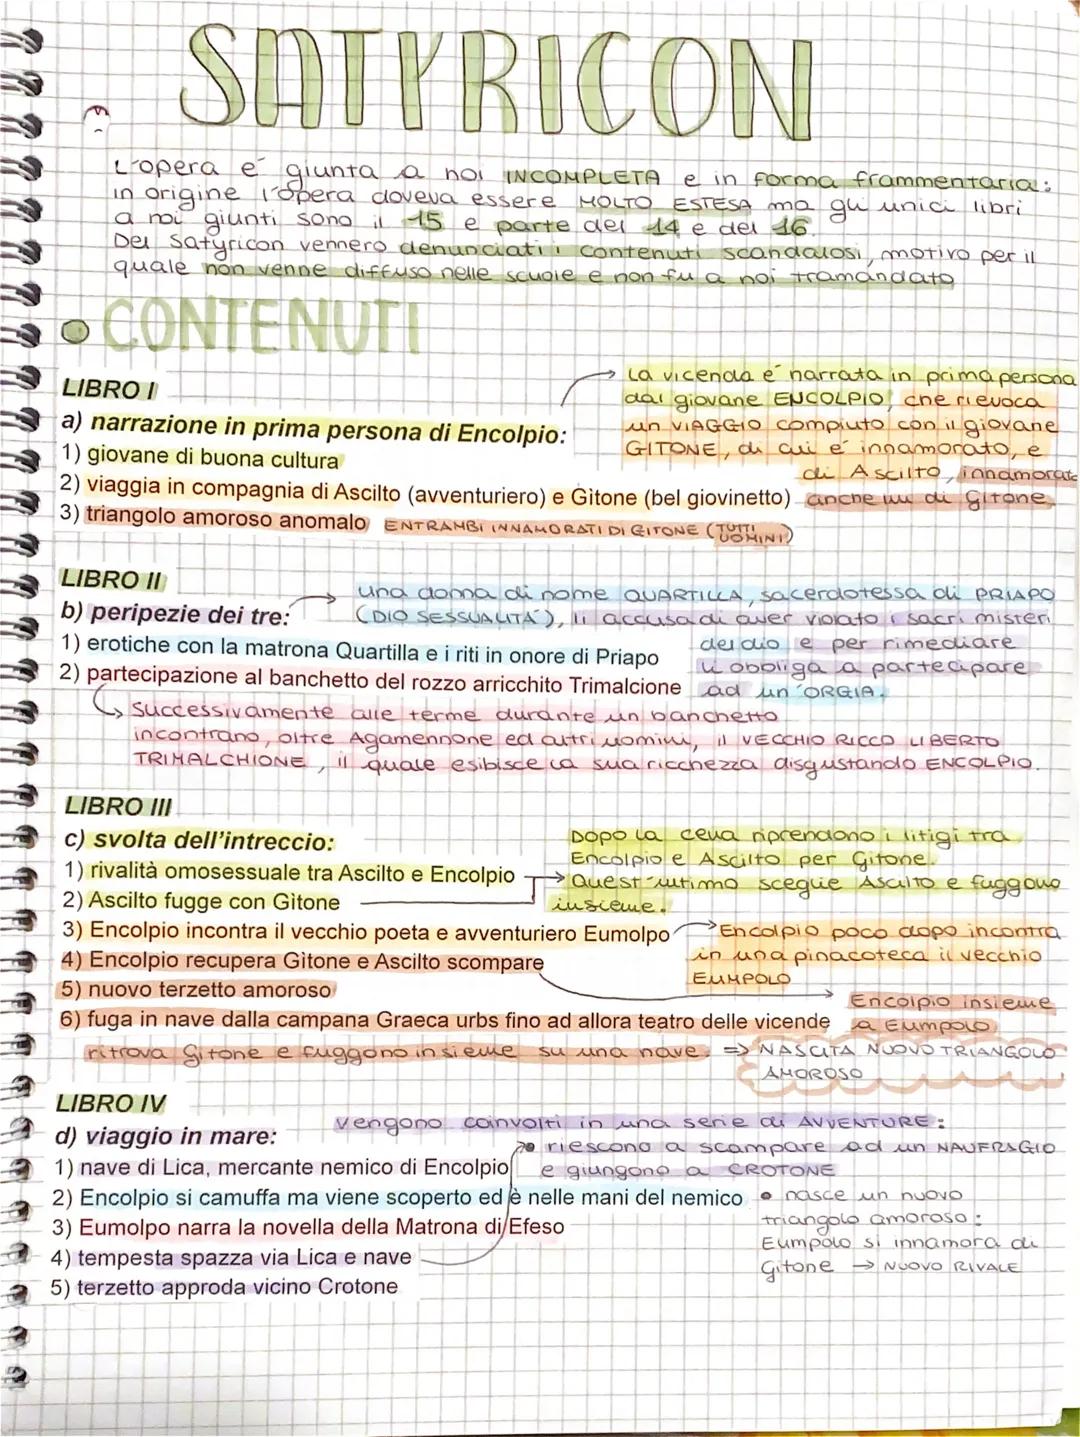 SATYRICON
L'opera é giunta a noi INCOMPLETA e in forma frammentaria:
in origine l'opera doveva essere MOLTO ESTESA ma gli unici libri
a noi giunti sono il 15 e parte del 14 e del 16.
Del Satyricon vennero denunciati i contenuti scandalosi, motivo per il
quale non venne diffuso nelle scuole e non fu a noi tramandato
CONTENUTI
LIBRO I
La vicenda é narrata in prima persona
dal giovane ENCOLPIO, che rievoca
un VIAGGIO compiuto con il giovane
GITONE, di cui é innamorato, e
di Ascilto, innamorato
anche lui di Gitone
a) narrazione in prima persona di Encolpio:
1) giovane di buona cultura
2) viaggia in compagnia di Ascilto (avventuriero) e Gitone (bel giovinetto)
3) triangolo amoroso anomalo ENTRAMBI INNAMORATI DI GITONE (TUTTI UOMINI)
LIBRO II
una donna di nome QUARTILLA, sacerdotessa di PRIAPO
(DIO SESSUALITÁ), li accusa di aver violato i sacri misteri
del dio e per rimediare
li obbliga a partecipare
ad un'ORGIA.
b) peripezie dei tre:
1) erotiche con la matrona Quartilla e i riti in onore di Priapo
2) partecipazione al banchetto del rozzo arricchito Trimalcione
Successivamente alle terme durante un banchetto
incontrano, oltre Agamennone ed altri uomini, il VECCHIO RICCO LIBERTO
TRIMALCHIONE, il quale esibisce la sua ricchezza disgustando ENCOLPIO.
LIBRO III
c) svolta dell'intreccio:
1) rivalità omosessuale tra Ascilto e Encolpio
2) Ascilto fugge con Gitone
Dopo la cena riprendono i litigi tra
Encolpio e Ascilto per Gitone.
Quest'ultimo sceglie Ascilto e fuggono
insieme.
3) Encolpio incontra il vecchio poeta e avventuriero Eumolpo
Encolpio poco dopo incontra
in una pinacoteca il vecchio
EUMPOLO
4) Encolpio recupera Gitone e Ascilto scompare
5) nuovo terzetto amoroso
6) fuga in nave dalla campana Graeca urbs fino ad allora teatro delle vicende
Encolpio insieme
a Eumpolo
ritrova Gitone e fuggono insieme su una nave. => NASCITA NUOVO TRIANGOLO
AMOROSO
LIBRO IV
vengono coinvolti in una serie di AVVENTURE:
• riescono a scampare ad un NAUFRAGIO
e giungono a CROTONE
• nasce un nuovo
triangolo amoroso:
Eumpolo si innamora di
Gitone → NUOVO RIVALE
d) viaggio in mare:
1) nave di Lica, mercante nemico di Encolpio
2) Encolpio si camuffa ma viene scoperto ed è nelle mani del nemico
3) Eumolpo narra la novella della Matrona di Efeso
4) tempesta spazza via Lica e nave
5) terzetto approda vicino Crotone